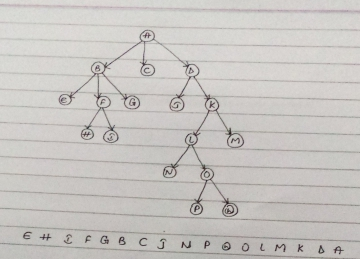 A
B C D
E F G J K
H I L M
N O
P Q
E H I F G B C J N P Q O L M K D A